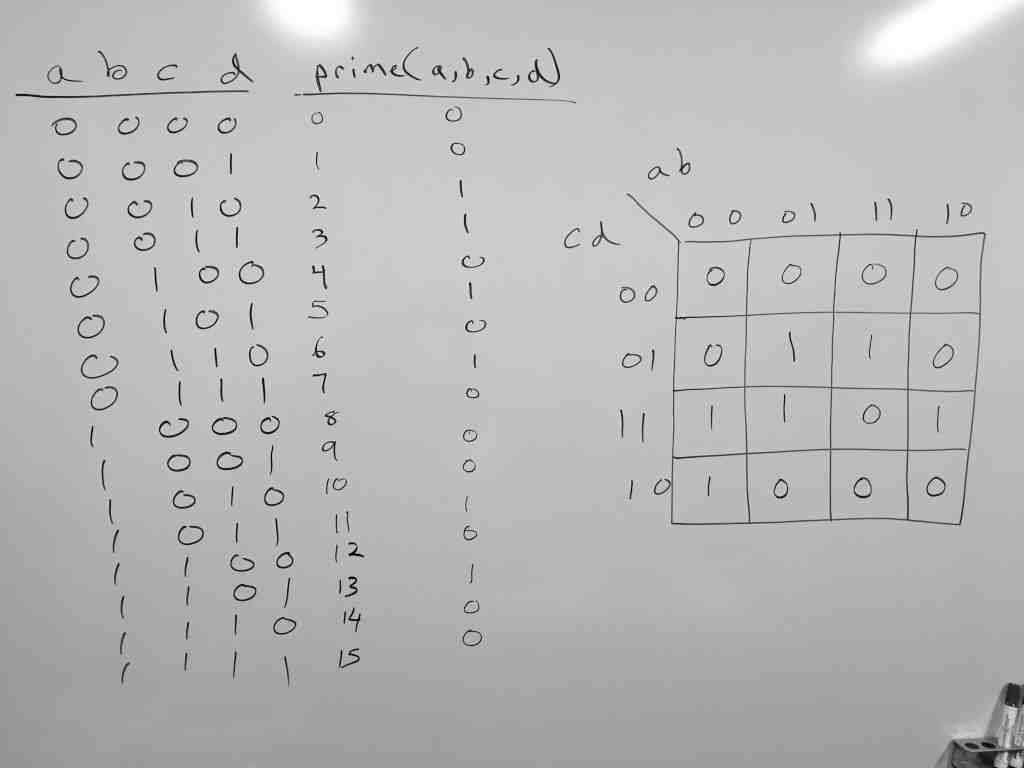 a b c d prime(a,b,c,d)
0 0 0 0 0 0
0 0 0 1 1 0
0 0 1 0 2 1
0 0 1 1 3 1
0 1 0 0 4 0
0 1 0 1 5 1
0 1 1 0 6 0
0 1 1 1 7 1
1 0 0 0 8 0
1 0 0 1 9 0
1 0 1 0 10 0
1 0 1 1 11 1
1 1 0 0 12 0
1 1 0 1 13 1
1 1 1 0 14 0
1 1 1 1 15 0
ab
cd
00 01 11 10
00 0 0 0 0
01 0 1 1 0
11 1 1 0 1
10 1 0 0 0